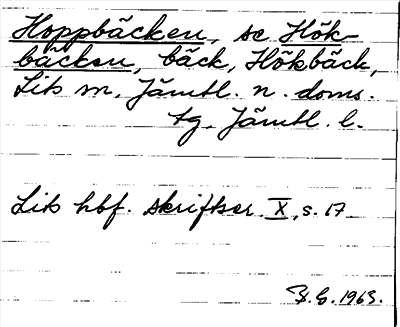 Hoppbäcken, se Hök-
bäcken, bäck, Hökbäck,
Lits sn, Jämtl. n. doms.
tg, Jämtl. l.
Lits hbf. skriftser. X, s. 17
1963.